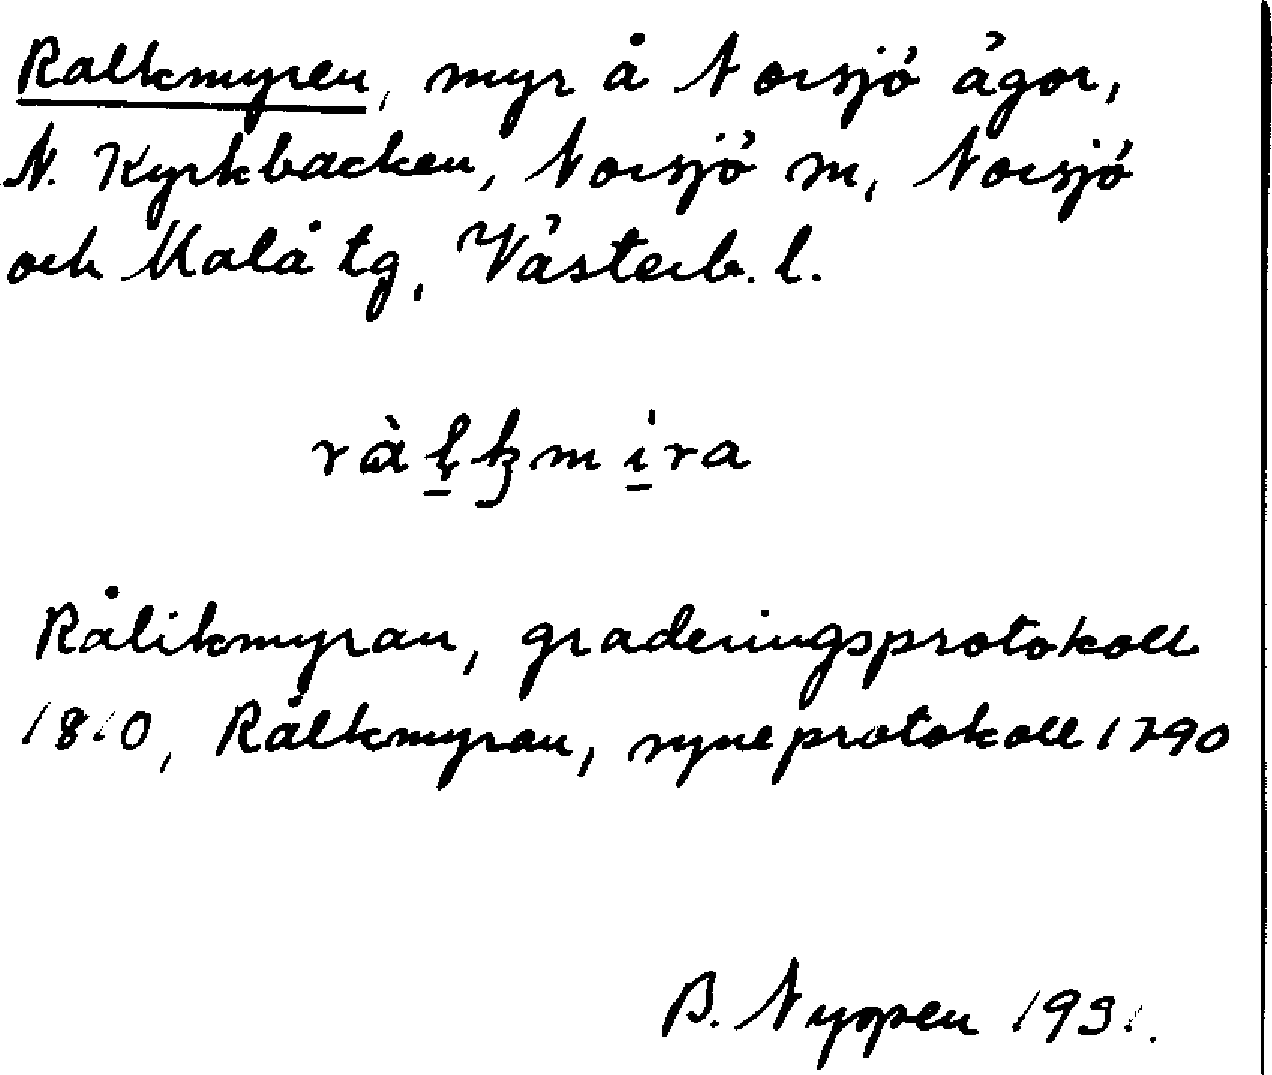 Ralkmyren, myr å Norsjö ägor,
N. Kyrkbacken, Norsjö sn, Norsjö
och Malå tg, Västerb. l.
Rålikmyran, graderingsprotokoll
1810, Rålkmyran, syneprotokoll 1790
B. Nyppen 1931.